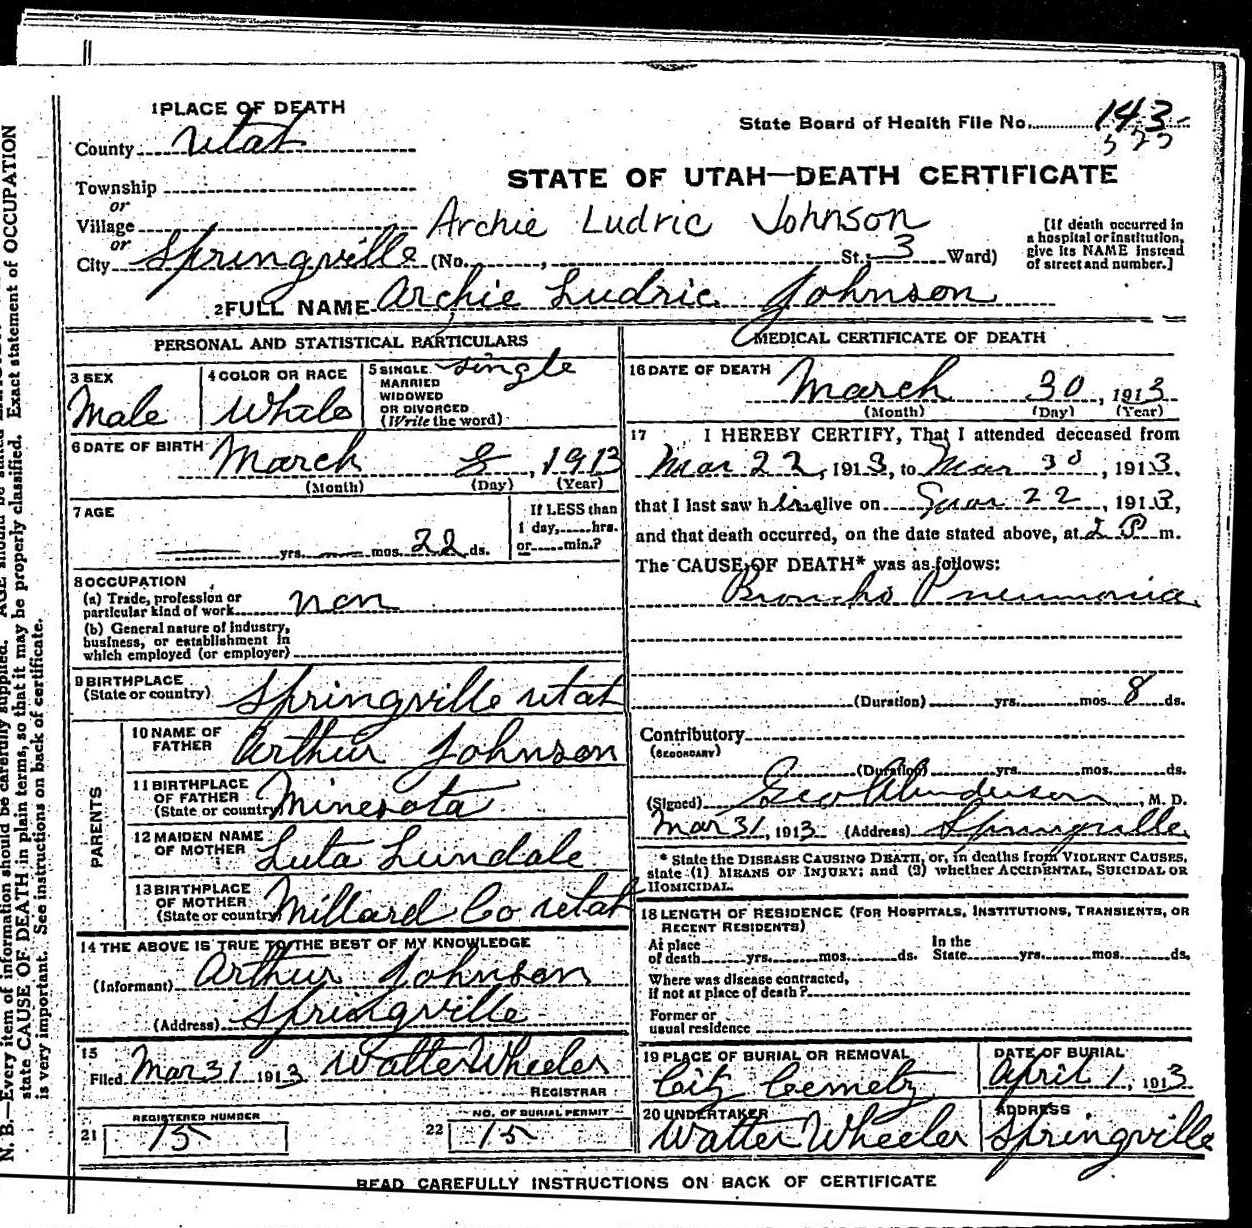 1 PLACE OF DEATH
County Utah
State Board of Health File No. 143
Township
or
Village
or
City Springville (No. , St.; 3 Ward)
STATE OF UTAH—DEATH CERTIFICATE
Archie Ludric Johnson
[If death occurred in
a hospital or institution,
give its NAME instead
of street and number.]
2 FULL NAME Archie Ludric Johnson
PERSONAL AND STATISTICAL PARTICULARS
3 SEX
Male
4 COLOR OR RACE
White
5 SINGLE single
MARRIED
WIDOWED
OR DIVORCED
(Write the word)
6 DATE OF BIRTH March 8, 1913
(Month) (Day) (Year)
7 AGE
yrs. mos. 22 ds.
If LESS than
1 day, hrs.
or min.?
8 OCCUPATION
(a) Trade, profession or
particular kind of work non
(b) General nature of industry,
business, or establishment in
which employed (or employer)
9 BIRTHPLACE
(State or country) Springville Utah
PARENTS
10 NAME OF
FATHER Arthur Johnson
11 BIRTHPLACE
OF FATHER
(State or country) Minesota
12 MAIDEN NAME
OF MOTHER Luta Lundale
13 BIRTHPLACE
OF MOTHER
(State or country) Millard Co Utah
14 THE ABOVE IS TRUE TO THE BEST OF MY KNOWLEDGE
(Informant) Arthur Johnson
(Address) Springville
15
Filed Mar 31 1913 Walter Wheeler
REGISTRAR
REGISTERED NUMBER
21 15
NO. OF BURIAL PERMIT
22 15
MEDICAL CERTIFICATE OF DEATH
16 DATE OF DEATH
March 30, 1913
(Month) (Day) (Year)
17 I HEREBY CERTIFY, That I attended deceased from
Mar 22, 1913, to Mar 30, 1913,
that I last saw him alive on Mar 22, 1913,
and that death occurred, on the date stated above, at 2 P m.
The CAUSE OF DEATH* was as follows:
Broncho Pneumonia
(Duration) yrs. mos. 8 ds.
Contributory
(SECONDARY)
(Duration) yrs. mos. ds.
(Signed) Geo Anderson, M. D.
Mar 31, 1913 (Address) Springville
* State the DISEASE CAUSING DEATH, or, in deaths from VIOLENT CAUSES,
state (1) MEANS OF INJURY; and (2) whether ACCIDENTAL, SUICIDAL OR
HOMICIDAL.
18 LENGTH OF RESIDENCE (FOR HOSPITALS, INSTITUTIONS, TRANSIENTS, OR
RECENT RESIDENTS)
At place
of death yrs. mos. ds.
In the
State yrs. mos. ds.
Where was disease contracted,
if not at place of death?
Former or
usual residence
19 PLACE OF BURIAL OR REMOVAL
City Cemety
DATE OF BURIAL
April 1, 1913
20 UNDERTAKER
Walter Wheeler
ADDRESS
Springville
READ CAREFULLY INSTRUCTIONS ON BACK OF CERTIFICATE
N. B.—Every item of information should be carefully supplied. AGE should be stated
state CAUSE OF DEATH in plain terms, so that it may be properly classified. Exact statement of OCCUPATION
is very important. See instructions on back of certificate.